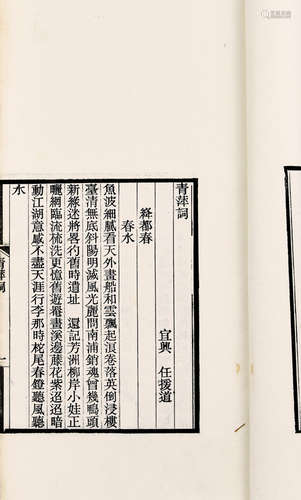 青萍詞
宜興 任援道
絳都春
春水
魚波細膩看天外畫船和雲飄起浪卷落英倒浸樓
臺清無底斜陽明滅風光麗問南浦銷魂曾幾鴨頭
新綠迷將畧彴舊時遺址 還記芳洲柳岸小娃正
曬網臨流梳洗更憶舊遊罨畫溪邊藤花紫迢迢暗
動江湖意感不盡天涯行李那時柁尾春鐙聽風聽
水
青萍詞
一